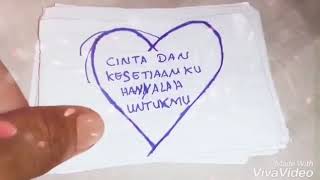 CINTA DAN
KESETIAAN KU
HANYALAH
UNTUKMU
Made With
VivaVideo